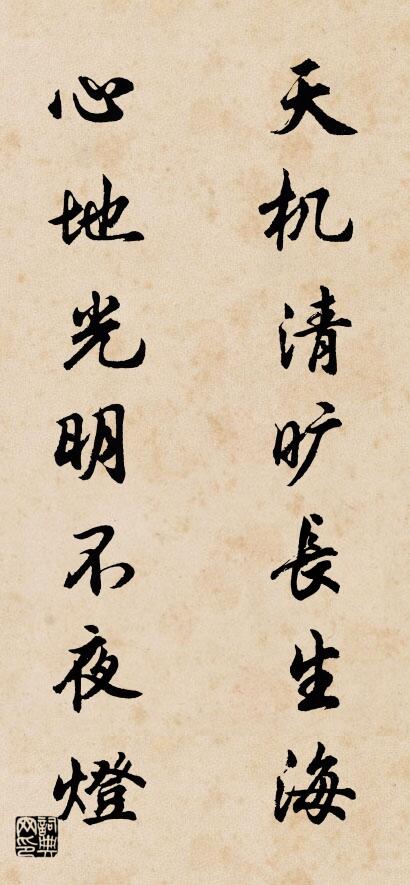 天机清旷長生海
心地光明不夜燈
詞典
网印